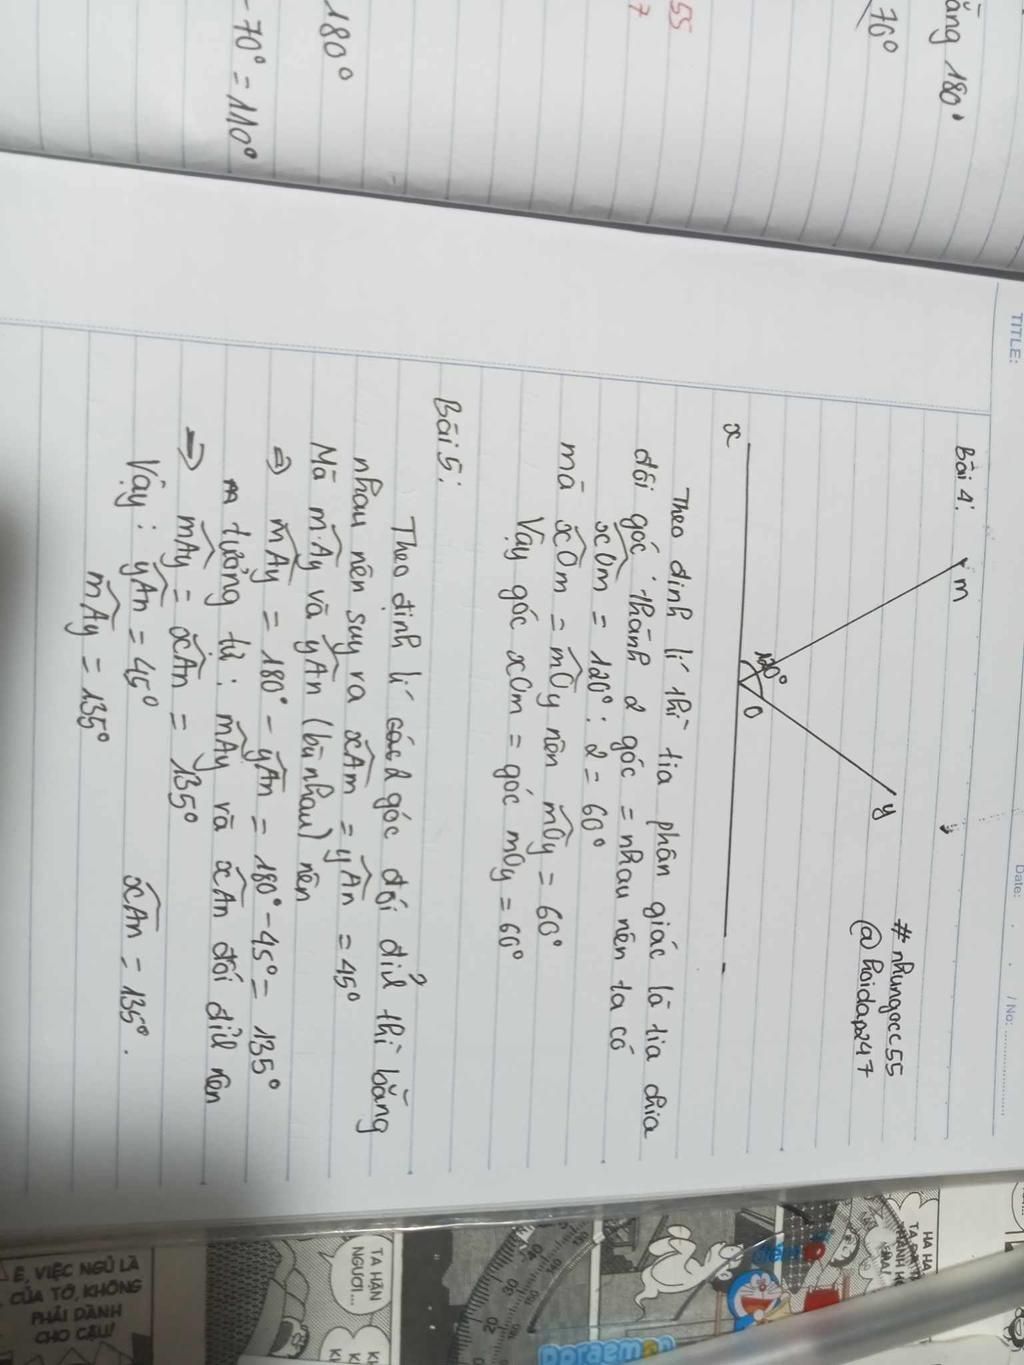 ăng 180°
70°
55
7
180°
- 70° = 110°
TITLE:
Date:
/ No:
Bài 4:
m
y
x
120°
O
# nhungocc55
@hoidap247
Theo định lí thì tia phân giác là tia chia
đôi góc thành 2 góc = nhau nên ta có
xOm = 120° : 2 = 60°
mà xOm = mOy nên mOy = 60°
Vậy góc xOm = góc mOy = 60°
Bài 5:
Theo định lí các 2 góc đối đỉnh thì bằng
nhau nên suy ra xAm = yAn = 45°
Mà mAy và yAn (bù nhau) nên
⇒ mAy = 180° - yAn = 180° - 45° = 135°
tưởng tự: mAy và xAn đối đỉnh nên
⇒ mAy = xAn = 135°
Vậy: yAn = 45° xAn = 135°.
mAy = 135°
HA HA
TA HẬN
NGƯƠI...
Doraemon
30
20
E, VIỆC NGỦ LÀ
CỦA TỚ, KHÔNG
PHẢI DÀNH
CHO CẬU!